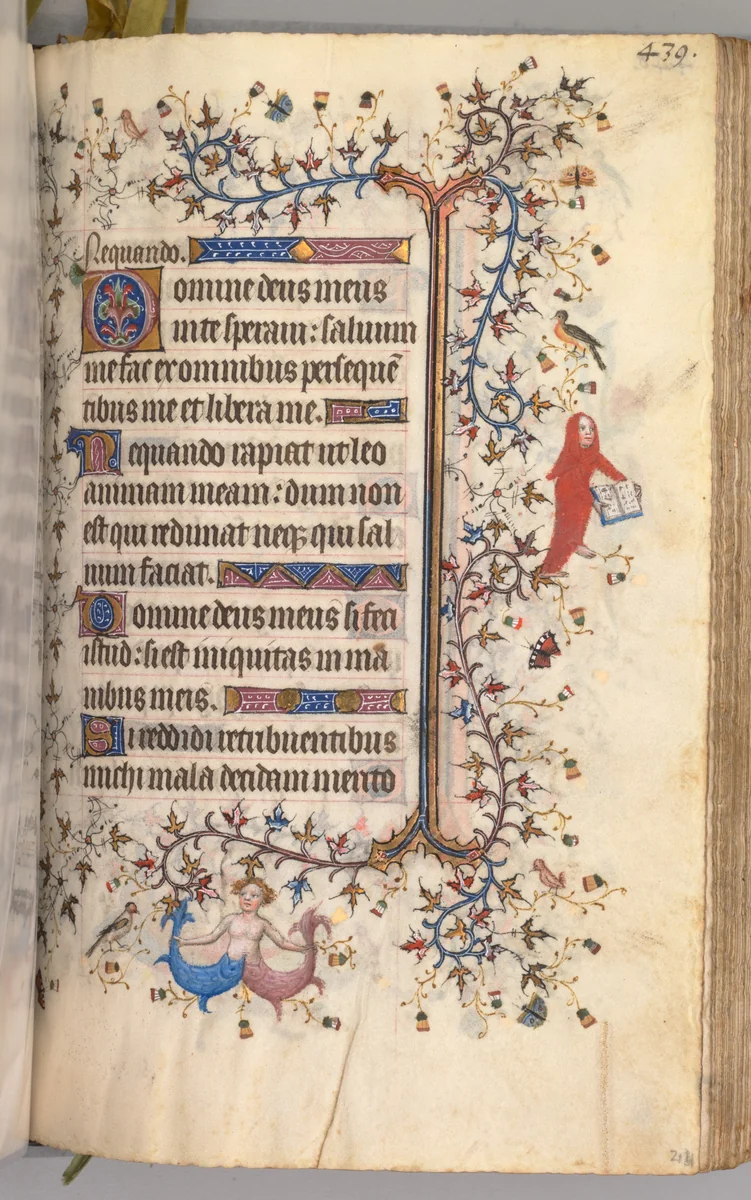 439.
Nequando.
Domine deus meus
in te speraui: saluum
me fac ex omnibus persequē
tibus me et libera me.
Nequando rapiat ut leo
animam meam: dum non
est qui redimat neqꝫ qui sal
uum faciat.
Domine deus meus si feci
istud: si est iniquitas in ma
nibus meis.
Si reddidi retribuentibus
michi mala decidam merito